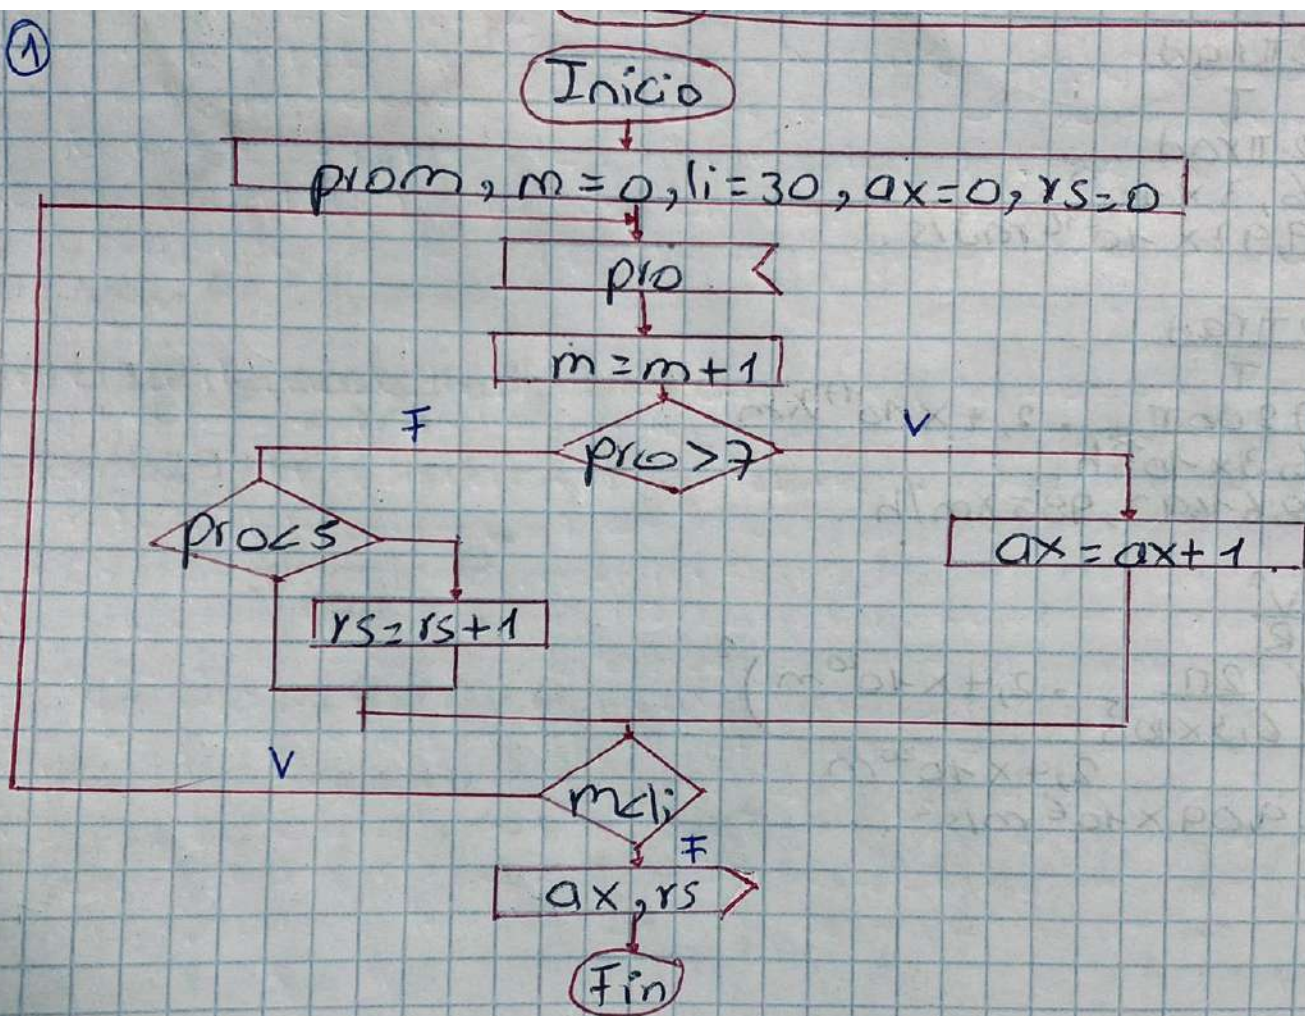 1
Inicio
prom, m=0, li=30, ax=0, rs=0
pro
m=m+1
F
V
pro>7
pro<5
ax=ax+1
rs=rs+1
V
m<li
F
ax, rs
Fin